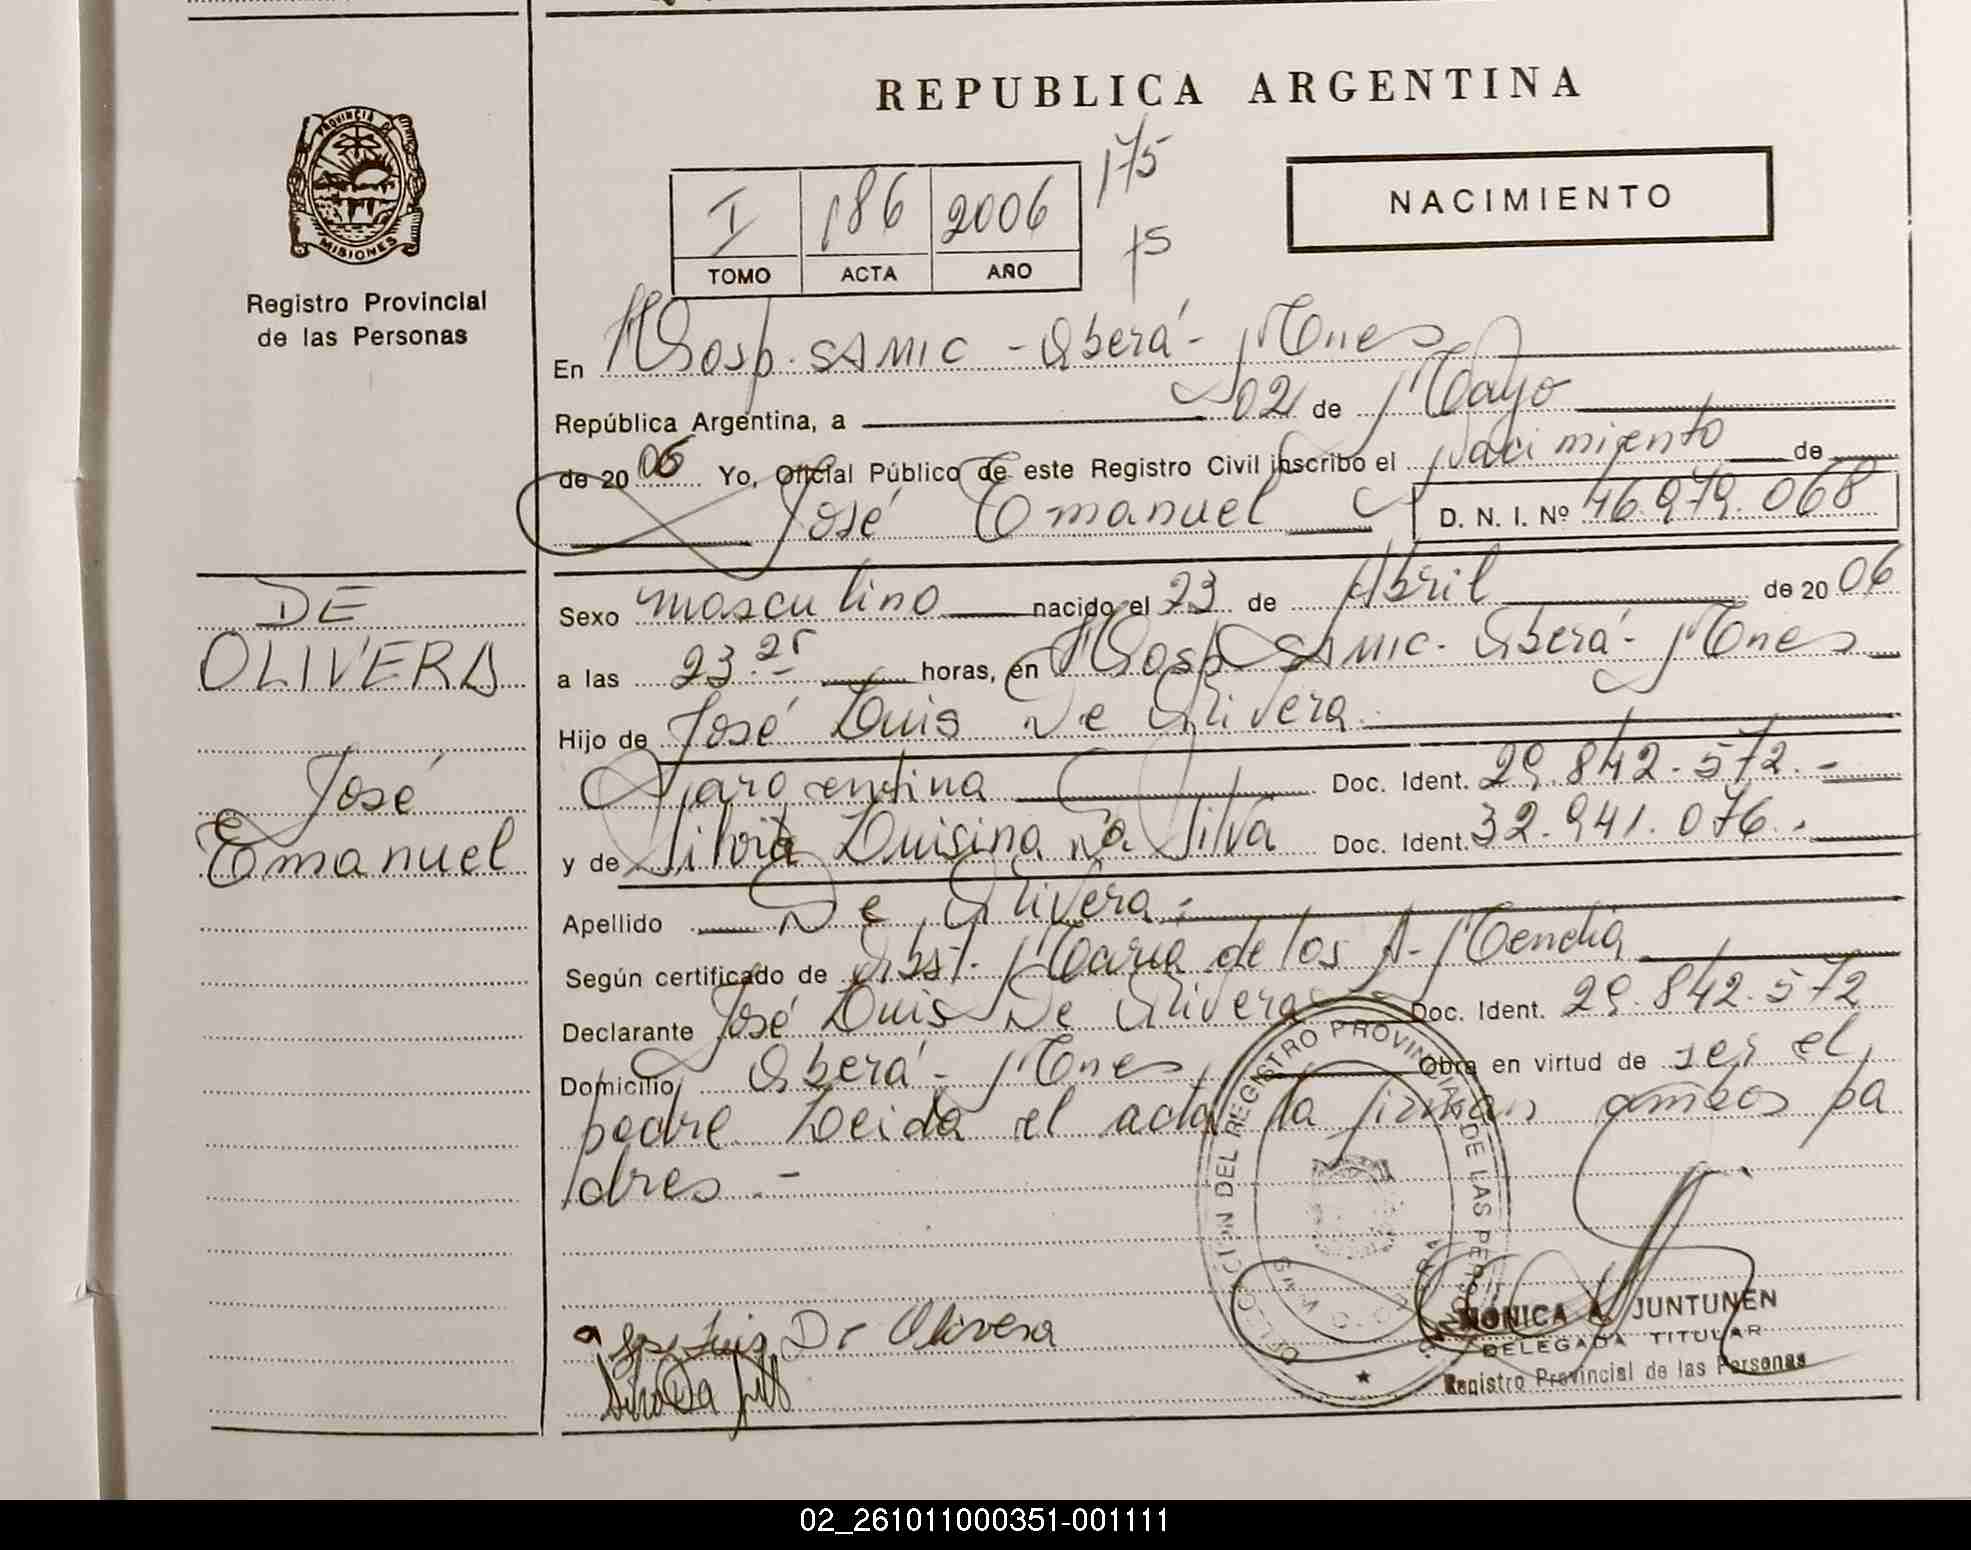 REPUBLICA ARGENTINA
PROVINCIA DE
MISIONES
Registro Provincial
de las Personas
I 186 2006
TOMO ACTA AÑO
175
15
NACIMIENTO
En Hosp. SAMIC - Oberá - Mnes
República Argentina, a 02 de Mayo
de 2006 Yo, Oficial Público de este Registro Civil inscribo el Nacimiento de
José Emanuel D. N. I. Nº 46.979.068
DE
OLIVERA
José
Emanuel
Sexo masculino nacido el 23 de Abril de 2006
a las 23.25 horas, en Hosp SAMIC - Oberá - Mnes
Hijo de José Luis De Olivera
Argentina Doc. Ident. 29.842.572.-
y de Silvia Luisina Da Silva Doc. Ident. 32.941.076.-
Apellido De Olivera.-
Según certificado de Obst. María de los A. Mendia
Declarante José Luis De Olivera Doc. Ident. 29.842.572
Domicilio Oberá - Mnes Obra en virtud de ser el
padre Leida el acta la firman ambos pa
dres.-
DELEGACION DEL REGISTRO PROVINCIAL DE LAS
Jose Luis De Olivera
MONICA JUNTUNEN
DELEGADA TITULAR
Registro Provincial de las Personas
02_261011000351-001111